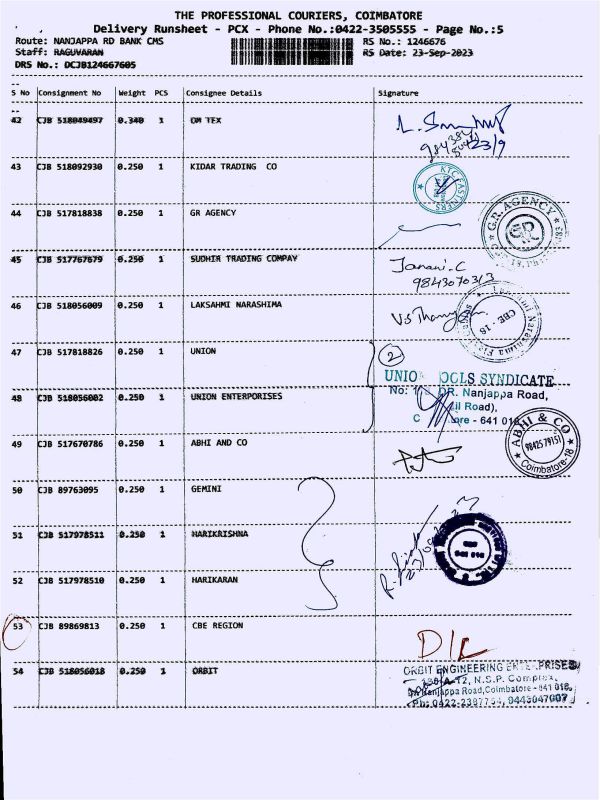 THE PROFESSIONAL COURIERS, COIMBATORE
Delivery Runsheet - PCX - Phone No.:0422-3505555 - Page No.:5
Route: NANJAPPA RD BANK CMS RS No.: 1246676
Staff: RAGUVARAN RS Date: 23-Sep-2023
DRS No.: DCJB124667605
S No Consignment No Weight PCS Consignee Details Signature
42 CJB 518049497 0.340 1 OM TEX
23/9
43 CJB 518092930 0.250 1 KIDAR TRADING CO
44 CJB 517818838 0.250 1 GR AGENCY
G.R. AGENCY
GR
45 CJB 517767679 0.250 1 SUDHIR TRADING COMPAY
Janani.C
9843070313
46 CJB 518056009 0.250 1 LAKSAHMI NARASHIMA
CBE - 18
47 CJB 517818826 0.250 1 UNION
2
48 CJB 518056002 0.250 1 UNION ENTERPORISES
SYNDICATE
Nanjappa Road,
- 641 018
49 CJB 517670786 0.250 1 ABHI AND CO
ABHI & CO
98425 79151
Coimbatore-18
50 CJB 89763095 0.250 1 GEMINI
51 CJB 517978511 0.250 1 HARIKRISHNA
52 CJB 517978510 0.250 1 HARIKARAN
53 CJB 89869813 0.250 1 CBE REGION
D/L
54 CJB 518056018 0.250 1 ORBIT
ORBIT ENGINEERING ENTERPRISES
N.S.P. Complex,
Nanjappa Road, Coimbatore - 641 018.